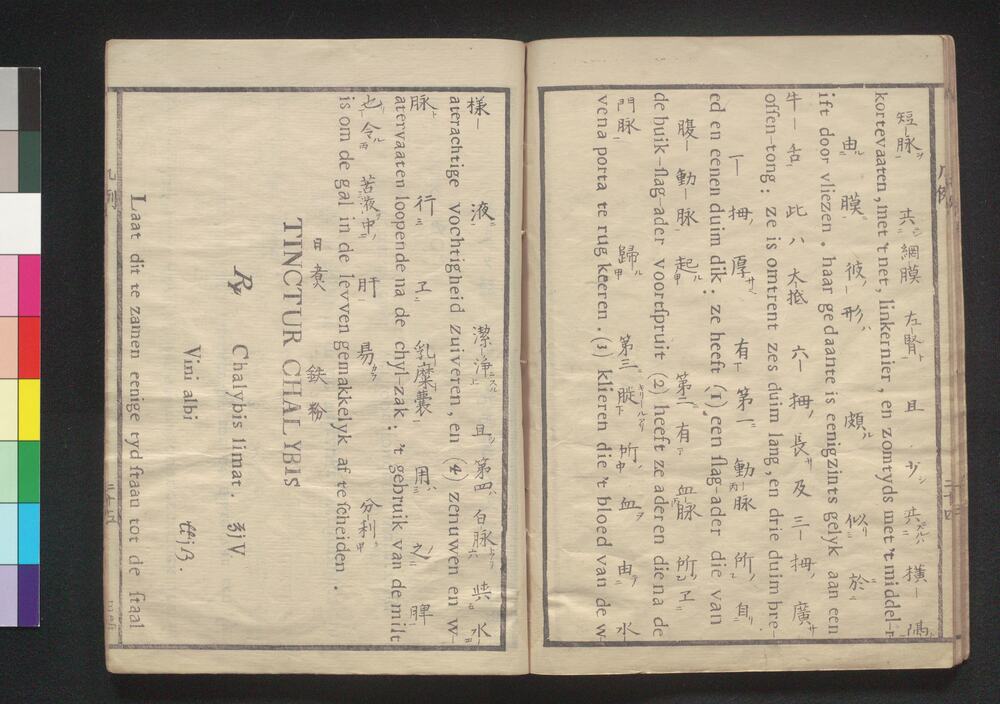 短脈 共 網膜 左腎 且 少 共 横隔
kortevaaten, met 't net, linkernier, en zomtyds met 't middel-r
由 膜 彼 形 頗 似 於
ift door vliezen. haar gedaante is eenigzints gelyk aan een
牛舌 此ハ大抵 六拇長及三拇廣
oſſen-tong; ze is omtrent zes duim lang, en drie duim bre-
一拇厚 有第一動脈所自
ed en eenen duim dik; ze heeft (1) een ſlag-ader die van
腹動脈起 第二有血脈所
de buik-ſlag-ader voortſpruit (2) heeft ze aderen die na de
門脈 歸 第三 所血由水
vena porta te rug keeren. (3) klieren die 't bloed van de w-
樣液 潔淨 且第四白脈 與水
aterachtige vochtigheid zuiveren, en (4) zenuwen en w-
脈 行 乳糜囊 用 之 脾
atervaaten loopende na de chyl-zak; 't gebruik van de milt
也令苦液中肝易 分利
is om de gal in de levven gemakkelyk af te ſcheiden.
TINCTUR CHALYBIS
鉄粉
Chalybis limat. ʒj V.
Vini albi ℔jß.
Laat dit te zamen eenige tyd ſtaan tot de ſtaal